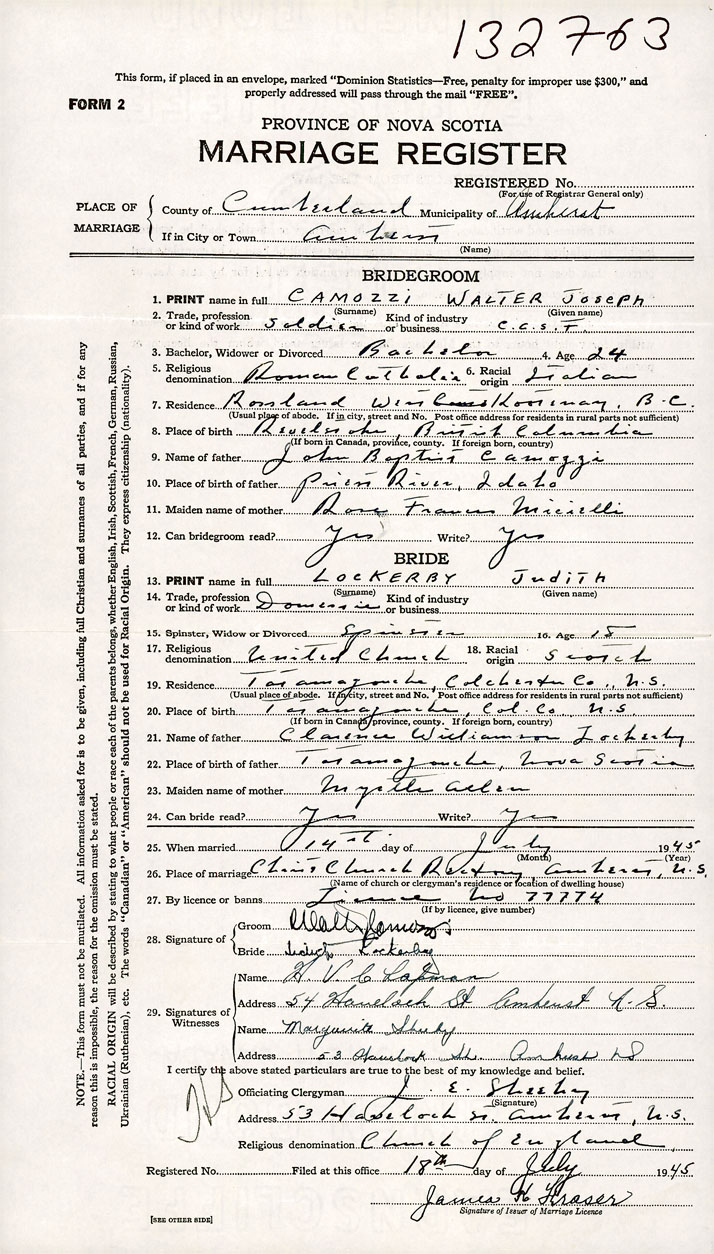 132763
This form, if placed in an envelope, marked "Dominion Statistics—Free, penalty for improper use $300," and
properly addressed will pass through the mail "FREE".
FORM 2
PROVINCE OF NOVA SCOTIA
MARRIAGE REGISTER
REGISTERED No.
(For use of Registrar General only)
PLACE OF MARRIAGE
County of Cumberland Municipality of Amherst
If in City or Town Amherst
(Name)
BRIDEGROOM
1. PRINT name in full CAMOZZI WALTER JOSEPH
(Surname) (Given name)
2. Trade, profession or kind of work Soldier Kind of industry or business C.A.S.F.
3. Bachelor, Widower or Divorced Bachelor 4. Age 24
5. Religious denomination Roman Catholic 6. Racial origin Italian
7. Residence Rossland West Kootenay, B.C.
(Usual place of abode. If in city, street and No. Post office address for residents in rural parts not sufficient)
8. Place of birth Revelstoke, British Columbia
(If born in Canada, province, county. If foreign born, country)
9. Name of father John Baptist Camozzi
10. Place of birth of father Priest River, Idaho
11. Maiden name of mother Rose Frances
12. Can bridegroom read? Yes Write? Yes
BRIDE
13. PRINT name in full LOCKERBY JUDITH
(Surname) (Given name)
14. Trade, profession or kind of work Domestic Kind of industry or business
15. Spinster, Widow or Divorced Spinster 16. Age 18
17. Religious denomination United Church 18. Racial origin Scotch
19. Residence Tatamagouche, Colchester Co., N.S.
(Usual place of abode. If in city, street and No. Post office address for residents in rural parts not sufficient)
20. Place of birth Tatamagouche, Col. Co., N.S
(If born in Canada, province, county. If foreign born, country)
21. Name of father Clarence Williamson Lockerby
22. Place of birth of father Tatamagouche, Nova Scotia
23. Maiden name of mother Myrtle Allen
24. Can bride read? Yes Write? Yes
25. When married 14th day of July 1945
(Month) (Year)
26. Place of marriage Christ Church Rectory, Amherst, N.S.
(Name of church or clergyman's residence or location of dwelling house)
27. By licence or banns License No 77774
(If by licence, give number)
28. Signature of
Groom Walter Camozzi
Bride Judith Lockerby
29. Signatures of Witnesses
Name H. V. C.
Address 54 Havelock St Amherst N.S.
Name Marguerite Sheehy
Address 53 Havelock St. Amherst NS
I certify the above stated particulars are true to the best of my knowledge and belief.
Officiating Clergyman J. E. Sheehy
(Signature)
Address 53 Havelock St. Amherst, N.S.
Religious denomination Church of England
Registered No. Filed at this office 18th day of July 1945
James H Fraser
Signature of Issuer of Marriage Licence
[SEE OTHER SIDE]
NOTE.—This form must not be mutilated. All information asked for is to be given, including full Christian and surnames of all parties, and if for any
reason this is impossible, the reason for the omission must be stated.
RACIAL ORIGIN will be described by stating to what people or race each of the parents belongs, whether English, Irish, Scottish, French, German, Russian,
Ukrainian (Ruthenian), etc. The words "Canadian" or "American" should not be used for Racial Origin. They express citizenship (nationality).